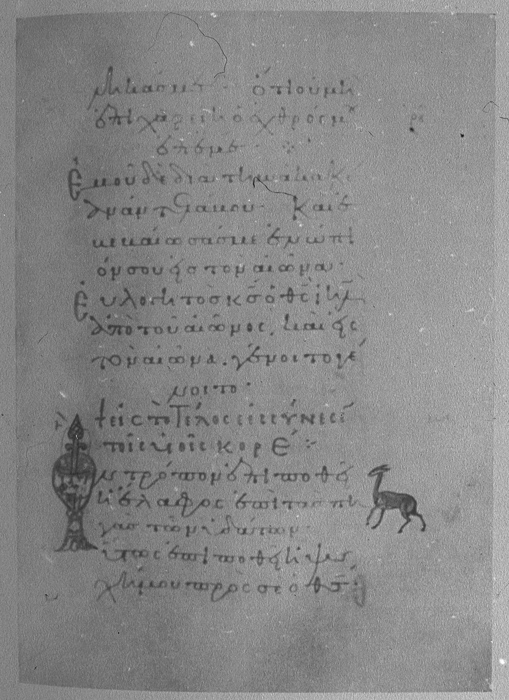 ὅτι οὐ μὴ
ἐπιχαρεῖ ὁ ἐχθρός μου
ἐπ' ἐμέ
Ἐμοῦ δὲ διὰ τὴν ἀκακί
αν ἀντελάβου· Καὶ ἐ
με ἐνώπι
όν σου εἰς τὸν αἰῶνα·
Εὐλογητὸς κς ὁ θς ιηλ
ἀπὸ τοῦ αἰῶνος, καὶ εἰς
τὸν αἰῶνα. γένοιτο γέ
νοιτο·
εἰς τὸ Τέλος εἰς ϹΥΝΕϹΙ
τοῖς υἱοῖς ΚΟΡΕ
ν τρόπον ἐπιποθεῖ
ἡ ἔλαφος ἐπὶ τὰς πη
γὰς τῶν ὑδάτων·
οὕτως ἐπιποθεῖ ἡ ψυ
χή μου πρὸς σέ ὁ θς